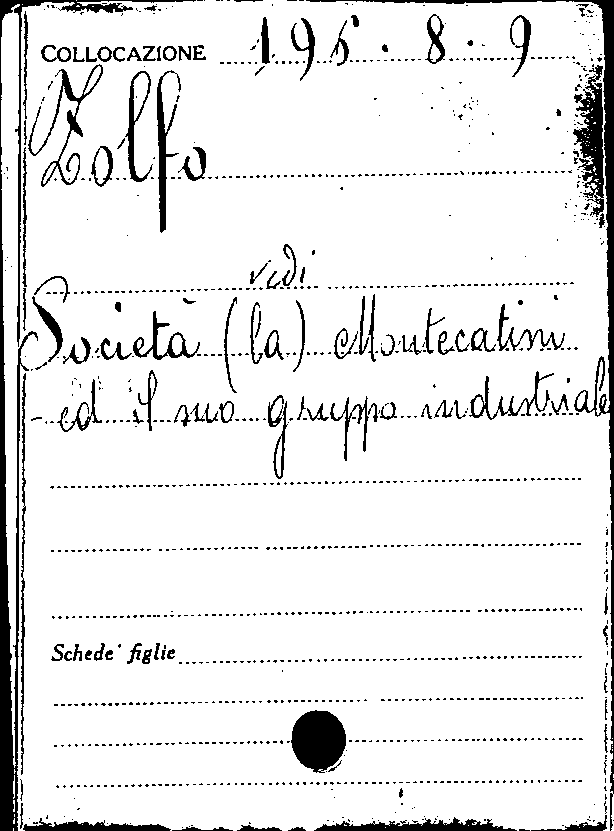 COLLOCAZIONE 195 . 8 . 9
Zolfo
vedi
Società (la) Montecatini
ed il suo gruppo industriale
Schede figlie